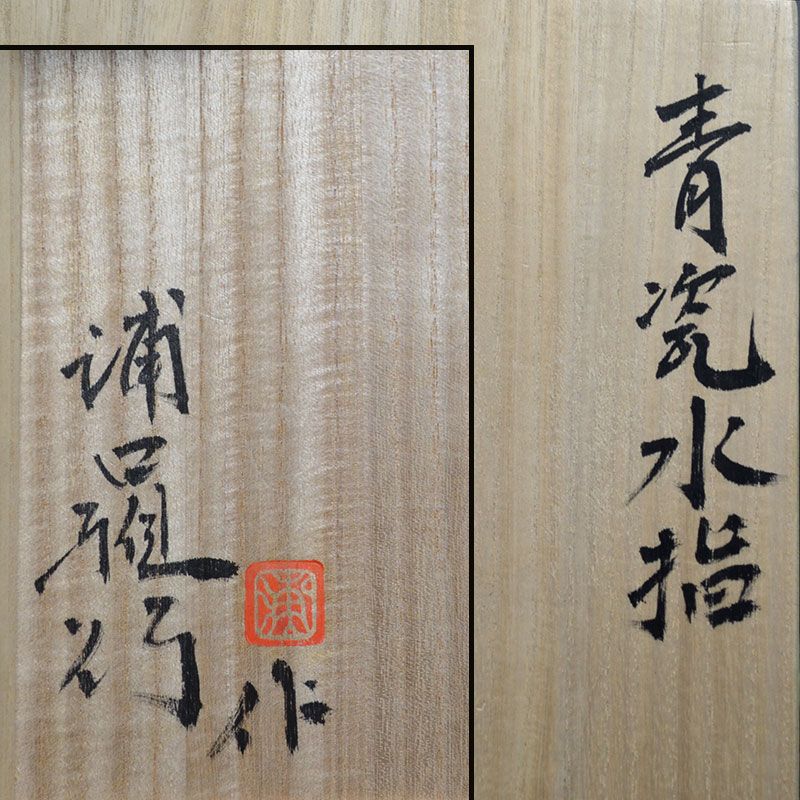 青瓷水指
浦口雅行
作
浦